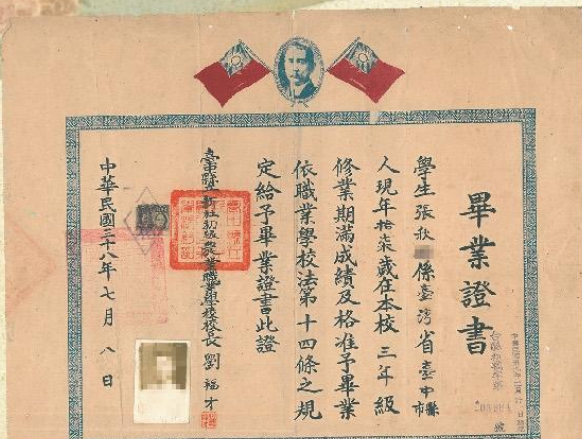 畢業證書
學生張秋 係臺灣省臺中縣市
人現年拾柒歲在本校三年級
修業期滿成績及格准予畢業
依職業學校法第十四條之規
定給予畢業證書此證
新社初級農業職業學校校長劉福才
中華民國三十八年七月八日